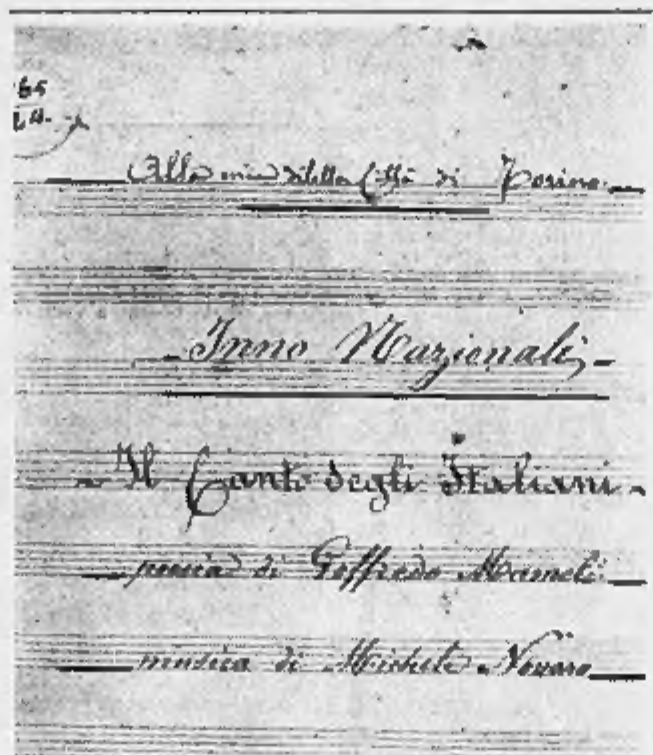 Alla mia diletta Città di Torino
Inno Nazionale
Il Canto degli Italiani
poesia di Goffredo Mameli
musica di Michele Novaro